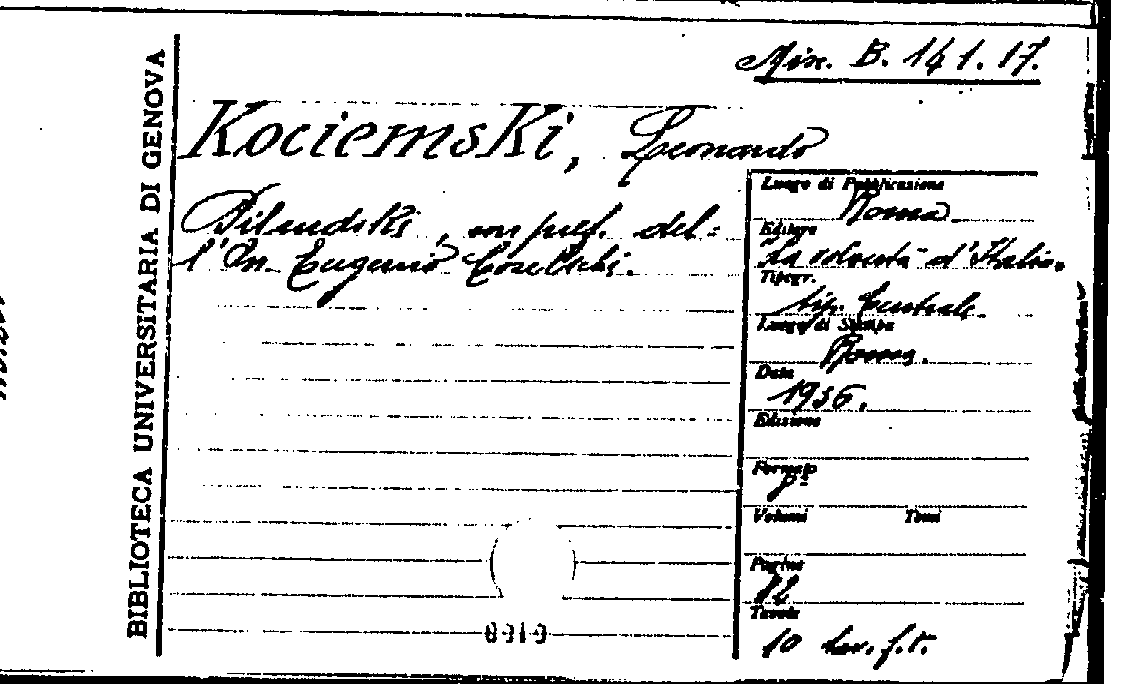 Misc. B. 141. 17.
Kociemski, Leonardo
Pilsudski, con pref. del=
l'On. Eugenio Coselschi.
BIBLIOTECA UNIVERSITARIA DI GENOVA
Luogo di Pubblicazione
Roma.
Editore
La volontà d'Italia.
Tipogr.
tip. Centrale.
Luogo di Stampa
Roma.
Data
1936.
Edizione
Formato
8º
Volumi Tomi
Pagine
82
Tavole
10 tav. f.t.